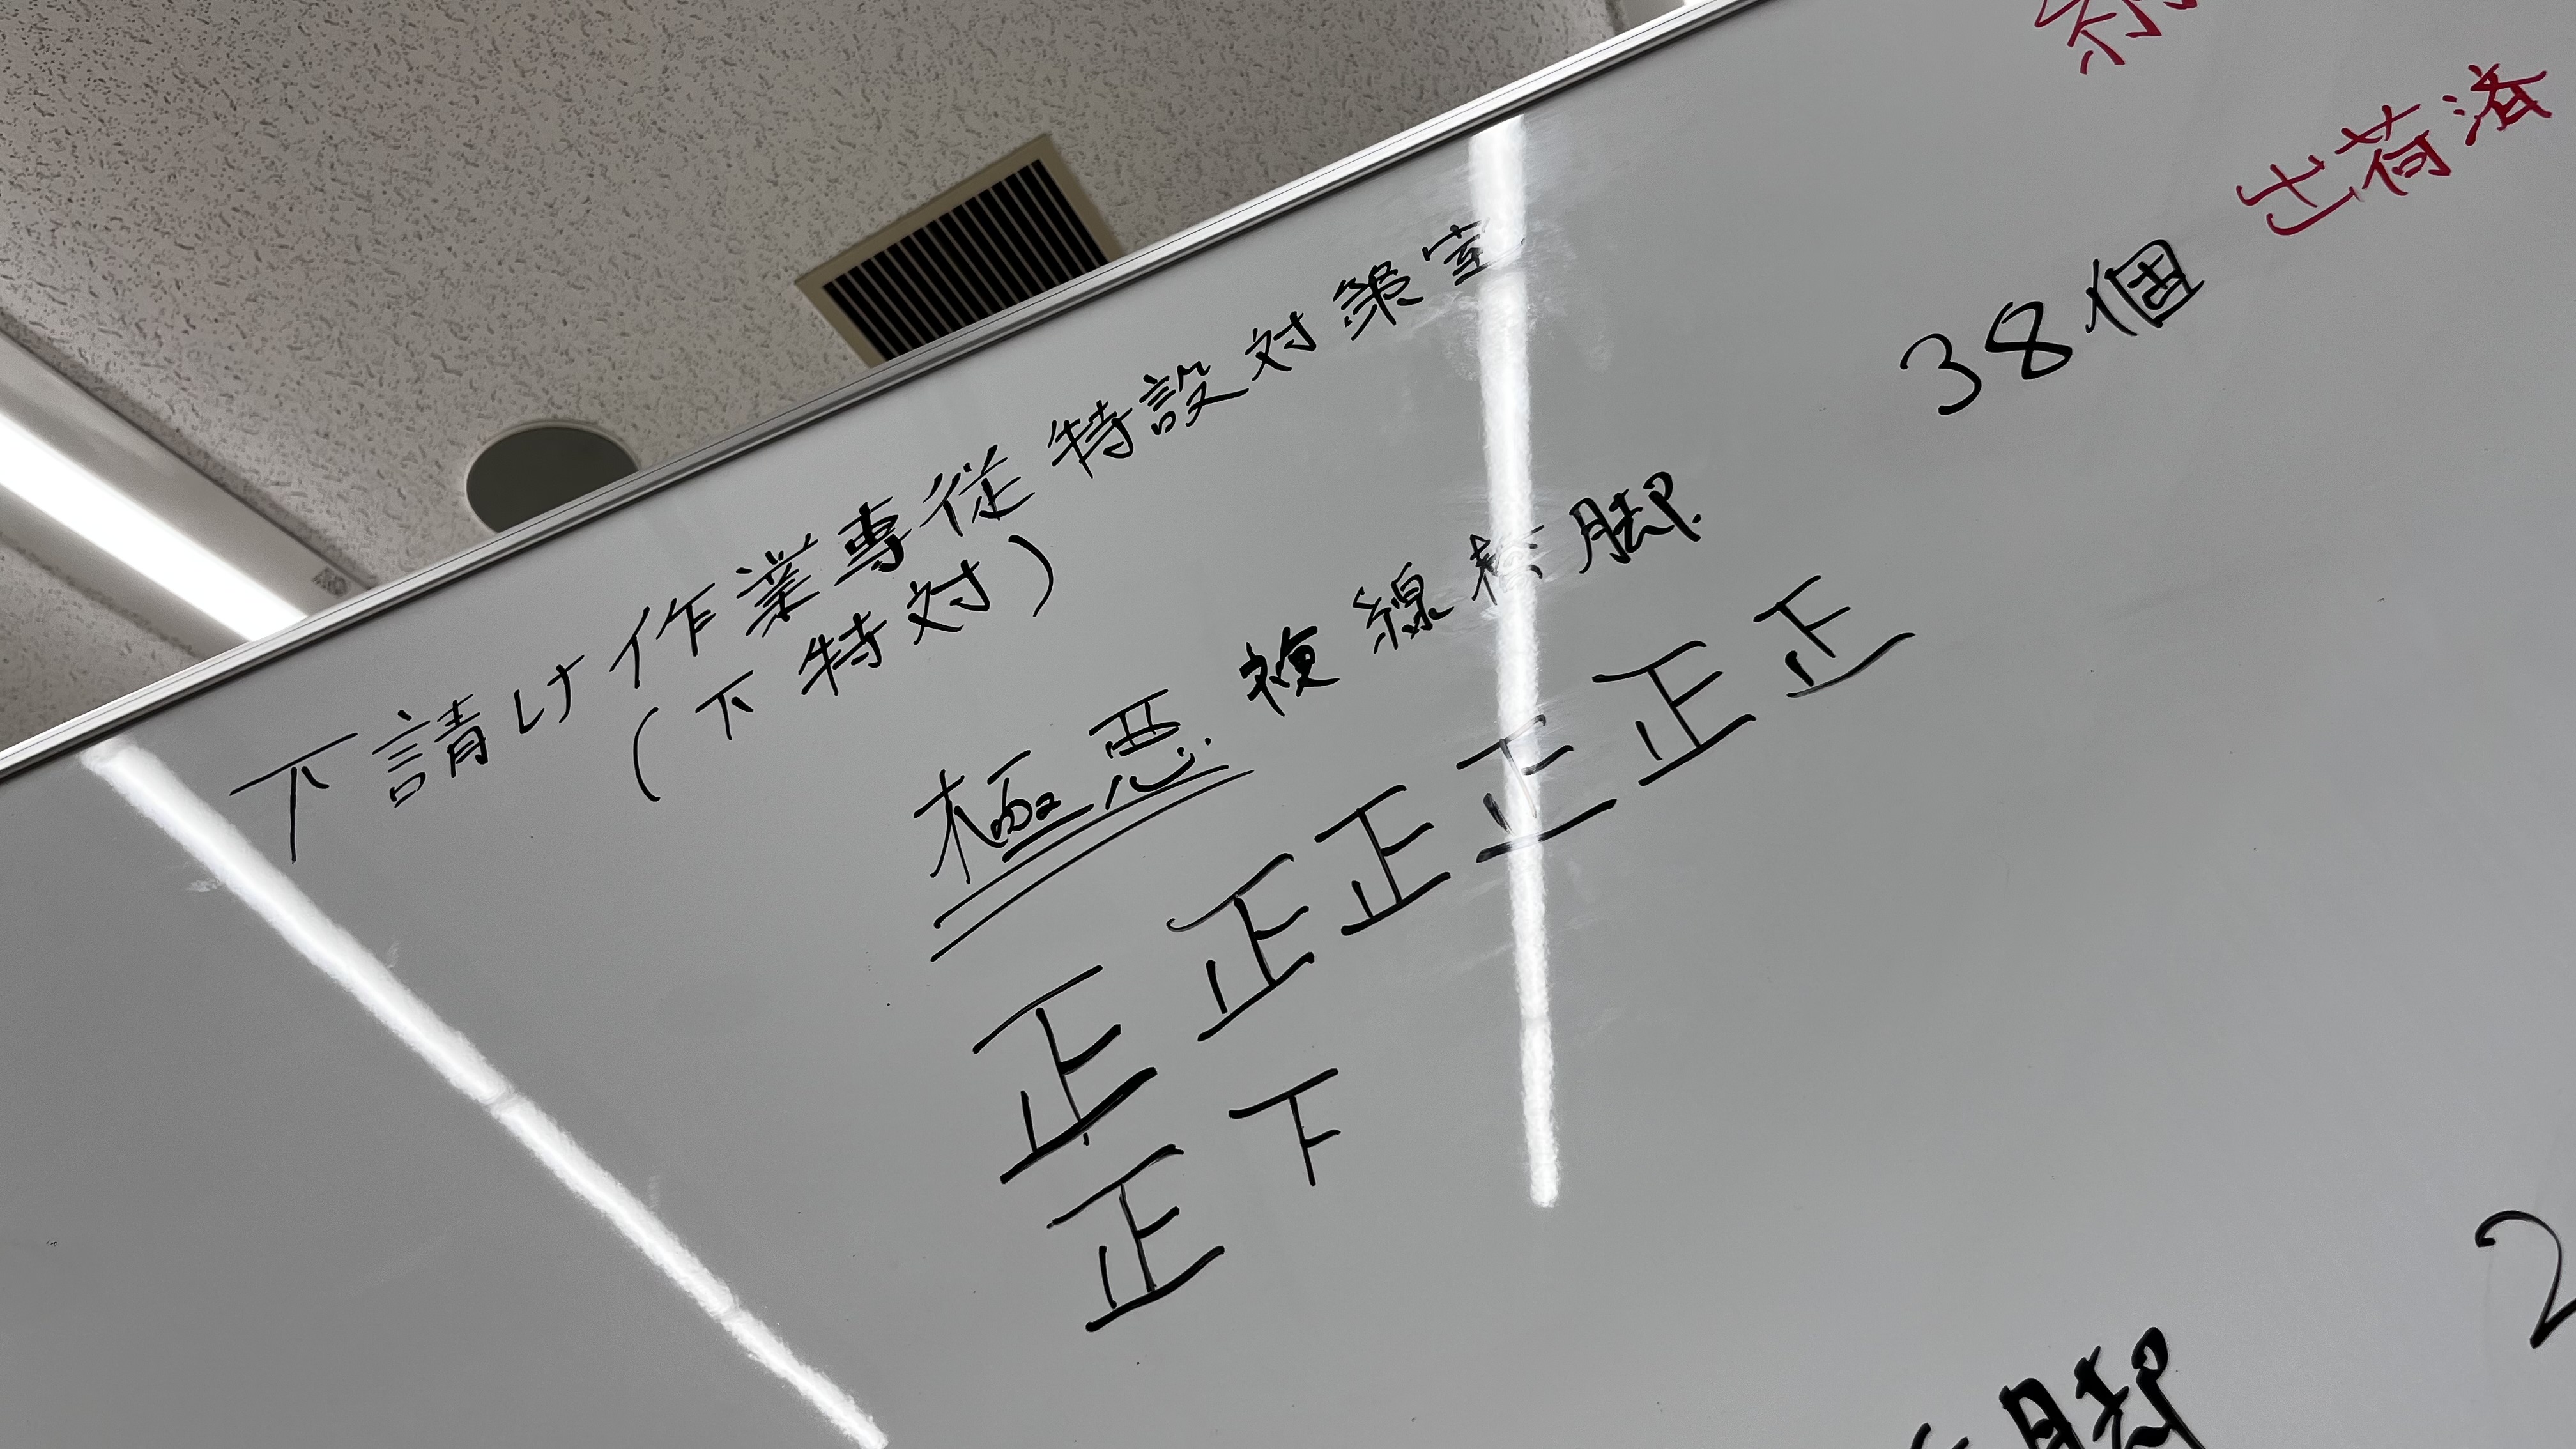 下請け作業専従特設対策室
(下特対)
極悪 複線橋脚 38個 出荷済
正正正正正正
正下
脚 2